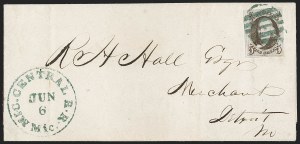 R H Hall Esqr
Merchant
Detroit
M
MIC. CENTRAL R.R.
JUN
6
Mic.